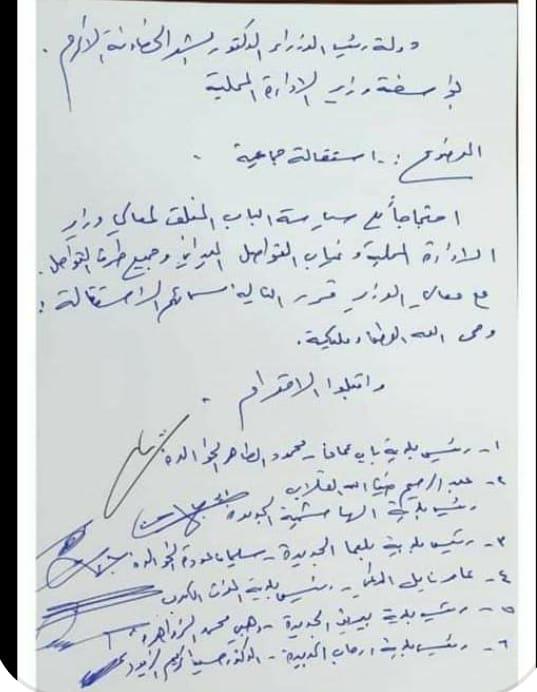 دولة رئيس الوزراء الدكتور بشر الخصاونة الأكرم .
بواسطة وزير الإدارة المحلية
الموضوع :- استقالة جماعية .
احتجاجاً على سياسة الباب المغلق لمعالي وزير
الإدارة المحلية وغياب التواصل الميداني وجميع طرق التواصل .
مع معالي الوزير قرر التالية أسمائهم الاستقالة :
وحمى الله الوطن ومليكه .
واقبلوا الاحترام .
١- رئيس بلدية باب عمان - محمود الطاهر الخوالدة
٢- عبد الرحيم ضيف الله القلاب
رئيس بلدية الهاشمية الجديدة
٣- رئيس بلدية بلعما الجديدة - سليمان عودة الخوالدة
٤- عامر نايل - رئيس بلدية
٥- رئيس بلدية بيرين الجديدة - محمد الزواهرة
٦- رئيس بلدية رحاب الجديدة - الدكتور